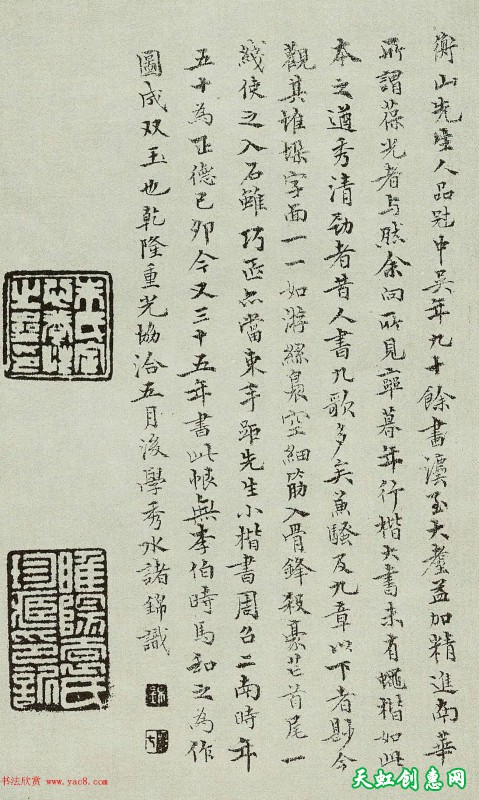 衡山先生人品冠中吳年九十餘書至大耋益加精進南華
所謂葆光者与然余向所見率暮年行楷大書未有蠅楷如此
本之遒秀清勁者昔人書九歌多矣兼騷及九章以下者尠今
觀其堆垛字面一一如游絲裊空細筋入骨鋒殺豪芒首尾一
綫使之入石雖巧匠亦當束手距先生小楷書周召二南時年
五十為正德己卯今又三十五年書此帙與李伯時馬和之為作
圖成双玉也乾隆重光協洽五月後學秀水諸錦識
书法欣赏 www.yac8.com
天虹创惠网